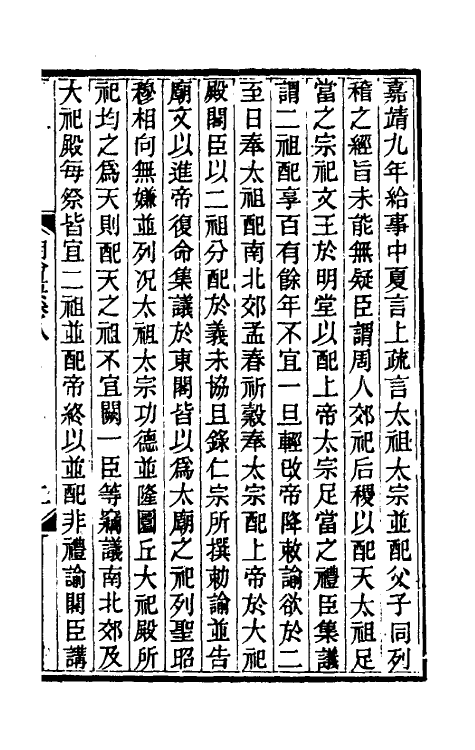 嘉靖九年給事中夏言上疏言太祖太宗並配父子同列
稽之經旨未能無疑臣謂周人郊祀后稷以配天太祖足
當之宗祀文王於明堂以配上帝太宗足當之禮臣集議
謂二祖配享百有餘年不宜一旦輕改帝降敕諭欲於二
至日奉太祖配南北郊孟春祈穀奉太宗配上帝於大祀
殿閣臣以二祖分配於義未協且錄仁宗所撰勅諭並告
廟文以進帝復命集議於東閣皆以為太廟之祀列聖昭
穆相向無嫌並列况太祖太宗功德並隆圜丘大祀殿所
祀均之為天則配天之祖不宜闕一臣等竊議南北郊及
大祀殿每祭皆宜二祖並配帝終以並配非禮諭閣臣講
明會要卷八